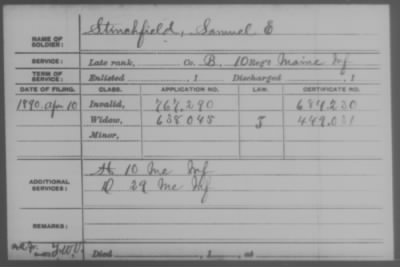 NAME OF SOLDIER: Stinchfield, Samuel E
SERVICE: Late rank, Co. B, 10 Reg't Maine Inf
TERM OF SERVICE: Enlisted , 1 Discharged , 1
DATE OF FILING. CLASS. APPLICATION NO. LAW. CERTIFICATE NO.
1890. Apr 10 Invalid, 767,290 684,230
Widow, 638045 449,031
Minor,
ADDITIONAL SERVICES: 10 Me Inf
D 29 Me Inf
REMARKS:
Died , 1 , at